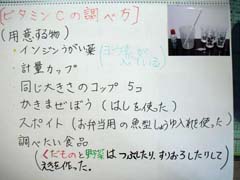 [ビタミンCの調べ方]
(用意する物)
・イソジンうがい薬 (ヨウ素が入っている)
・計量カップ
同じ大きさのコップ 5コ
かきまぜぼう (はしを使った)
スポイト (お弁当用の魚型しょうゆ入れを使った)
調べたい食品
(くだものと野菜はつぶしたり、すりおろしたりして
えきを作った。